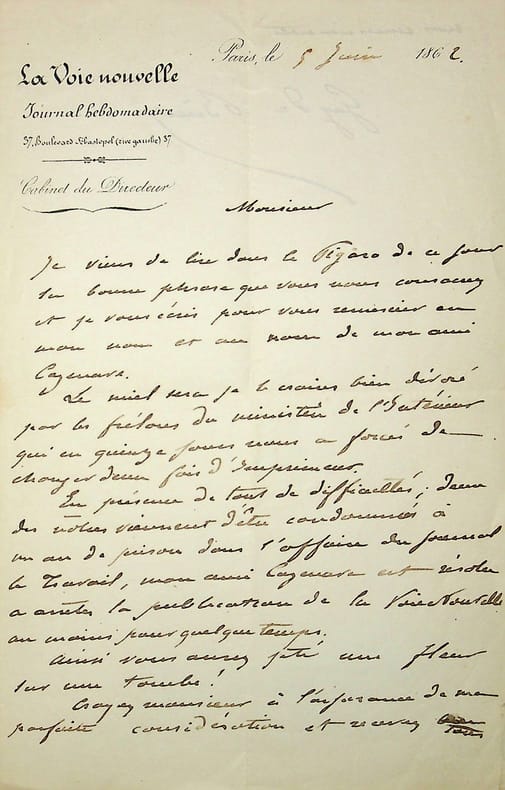 Paris, le 5 Juin 1862.
La Voie nouvelle
Journal hebdomadaire
37, Boulevard Sébastopol (rive gauche) 37
Cabinet du Directeur
Monsieur
Je viens de lire dans le Figaro de ce jour
la bonne phrase que vous nous consacrez
et je vous écris pour vous remercier en
mon nom et au nom de mon ami
Cazenave.
Le miel sera je le crains bien dévoré
par les frêlons du ministère de l'Intérieur
qui en quinze jours nous a forcés de
changer deux fois d'Imprimeur.
En présence de tant de difficultés, deux
des nôtres viennent d'être condamnés à
un an de prison dans l'affaire du Journal
le Travail, mon ami Cazenave est résolu
a arrêter la publication de la Voie Nouvelle
au moins pour quelque temps.
Ainsi vous aurez jeté une fleur
sur une tombe!
Croyez monsieur à l'assurance de ma
parfaite considération et recevez